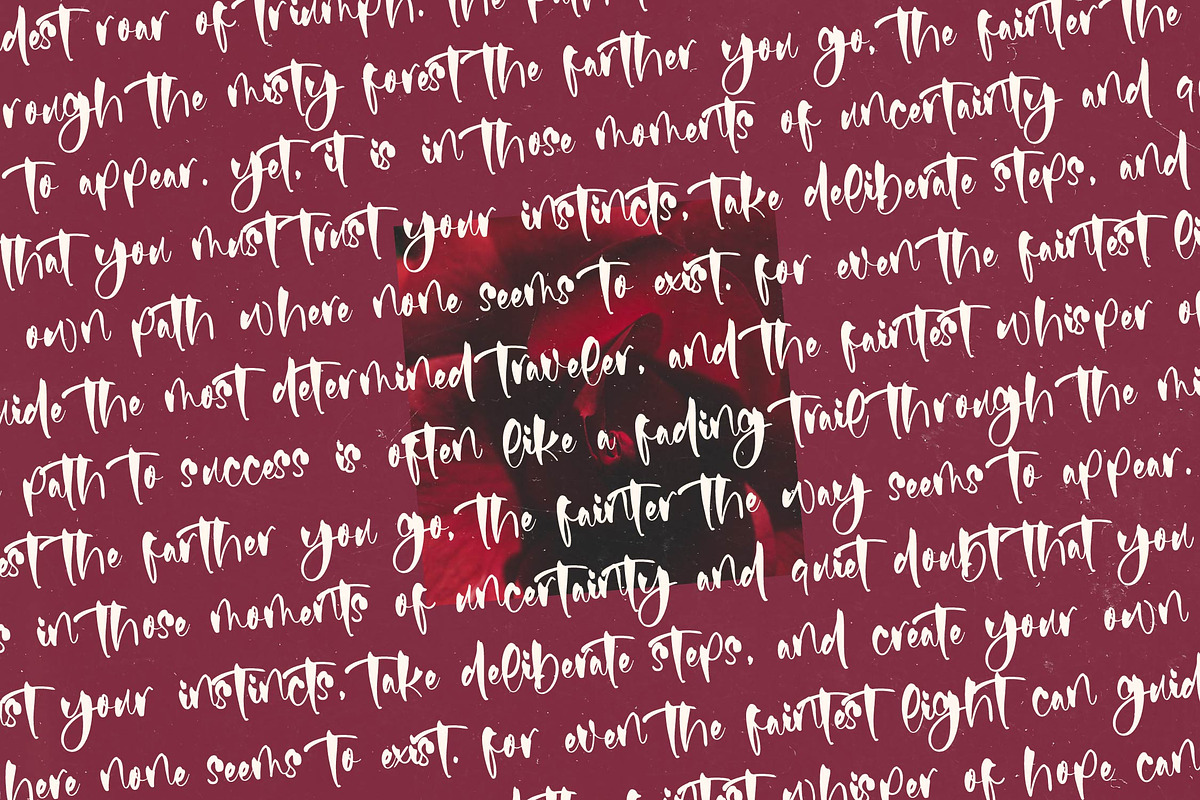 dest roar of triumph. The path
rough the misty forest the farther you go, the fainter the
to appear. yet, it is in those moments of uncertainty and q
that you must trust your instincts, take deliberate steps, and
own path where none seems to exist. for even the faintest li
uide the most determined traveler, and the faintest whisper o
path to success is often like a fading trail through the mi
est the farther you go, the fainter the way seems to appear.
s in those moments of uncertainty and quiet doubt that you
ust your instincts, take deliberate steps, and create your own
here none seems to exist. for even the faintest light can guid
the faintest whisper of hope can